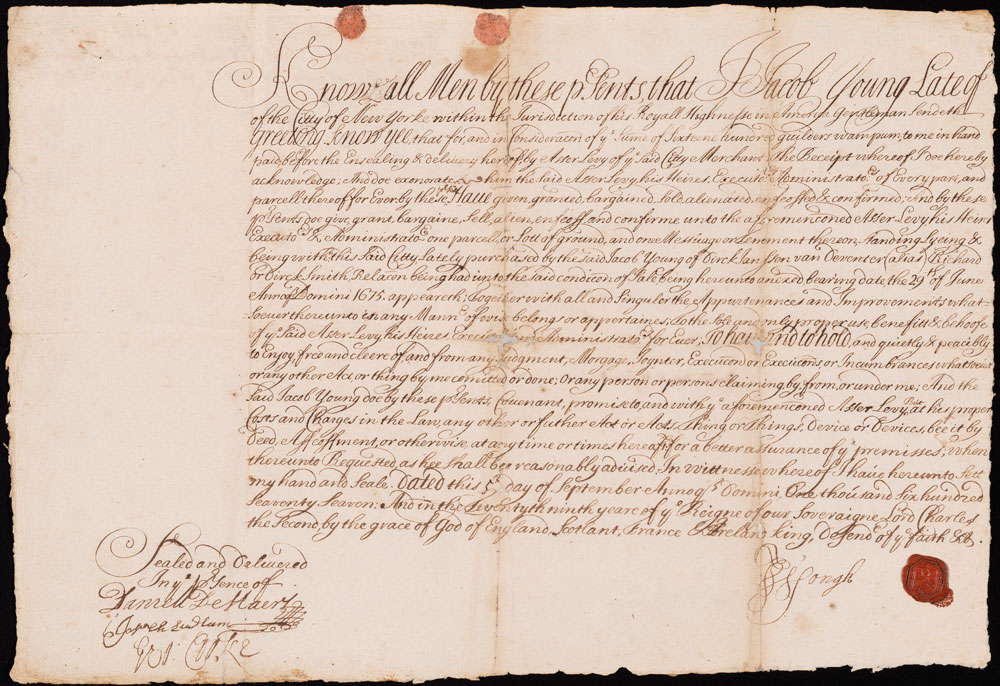 Know all Men by these pᵉsents, that I Jacob Young Late of
of the Citty of New Yorke within the Jurisdiction of his Royall Highnesse in America Gentleman Sendeth
Greeting Know Yee, that for, and in Consideracon of yᵉ Sume of Sixteene hundred guilders wampum, to me in hand
paid before the Ensealing & delivery hereof, by Asser Levy of yᵉ Said Citty Merchant The Receipt whereof I doe hereby
acknowledge; And doe exonorate him the Said Asser Levy, his Heires, Executoʳˢ Administratoʳˢ of Every part, and
parcell thereof for Ever, by these pᵉsents Haue given, granted, bargained, Sold, alienated, enfeoffed & confirmed; and by these
pᵉsents doe give, grant, bargaine, Sell, alien, enfeoff, and confirme unto the aforemenconed Asser Levy his Heirs
Executoʳˢ & Administratoʳˢ one parcell, or Lott of ground, and one Messuage or tenement thereon standing Lyeing &
being within this Said Citty Lately purchased by the said Jacob Young of Dirck Jansen van Deventer alias Richard
or Dirck Smith Relacon being had unto the Said condicon of Sale being hereunto anexed bearing date the 29ᵗʰ of June
Annoqᵉ Domini 1675. appeareth; Together with all and Singulor the Appurtenances and Improvements what-
Soever thereunto in any Mannʳ of wise belongs or appertaines, to the Sole and only proper use, benefitt & behoofe
of yᵉ Said Asser Levy his Heires, Administratoʳˢ for Ever, To haue and to hold, and quietly & peacibly
to Enjoy, free and cleere of and from any Judgment, Morgage, Joynter, Execucon or Execucons, or Incumbrances whatsoever
or any other Act, or thing by me comitted or done; Or any person or persons claiming by, from, or under me; And the
Said Jacob Young doe by these pᵉsents Covenant, promise to, and with yᵉ aforemenconed Asser Levy, at his proper
Costs and Charges in the Law, any other or further Act or Acts, Thing or Things, Device or Devices, bee it by
Deed, Enfeoffment, or otherwise, at any time or times hereafter for a better assurance of yᵉ premisses; when
thereunto Requested, as hee Shall be reasonably advised, In Wittnesse whereof I haue hereunto Sett
my hand and Seale. Dated this 5ᵗ day of September Annoqᵉ Domini, One thousand Six hundred
Seaventy Seaven: And in the twentyth ninth yeare of yᵉ Reigne of our Soveraigne Lord Charles
the Second, by the grace of God of England, Scotland, France & Ireland King, Defendʳ of yᵉ faith &c.
Sealed and Delivered
In yᵉ pᵉsence of
Joseph Ludlum